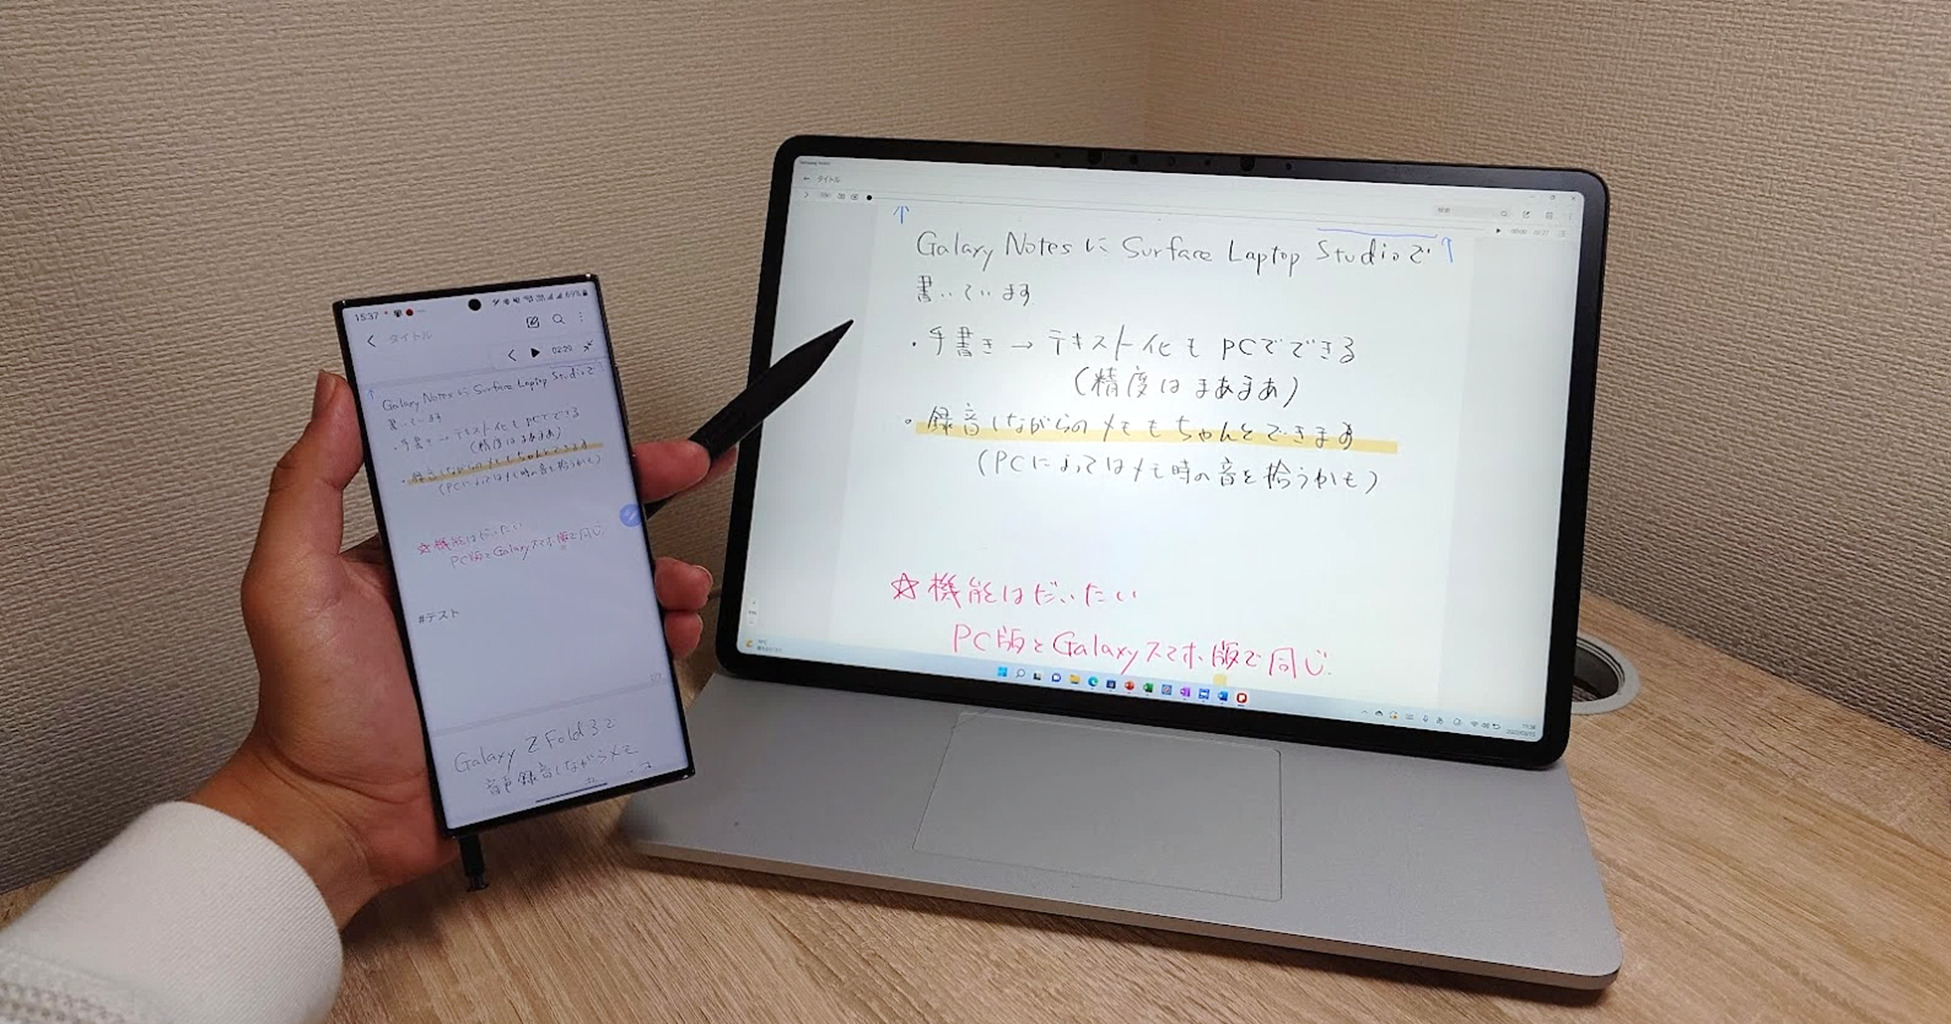 15:37
69%
タイトル
02:29
Galaxy Notes に Surface Laptop Studioで
書いています
・手書き → テキスト化も PCでできる
(精度はまあまあ)
・録音しながらのメモもちゃんとできます
(PCによってはメモ時の音を拾うかも)
☆機能はだいたい
PC版とGalaxyスマホ版で同じ.
#テスト
Galaxy Z Fold3で
音声録音しながらメモ
Samsung Notes
タイトル
検索
Galaxy Notes に Surface Laptop Studioで
書いています
・手書き → テキスト化も PCでできる
(精度はまあまあ)
・録音しながらのメモもちゃんとできます
(PCによってはメモ時の音を拾うかも)
☆機能はだいたい
PC版とGalaxyスマホ版で同じ.